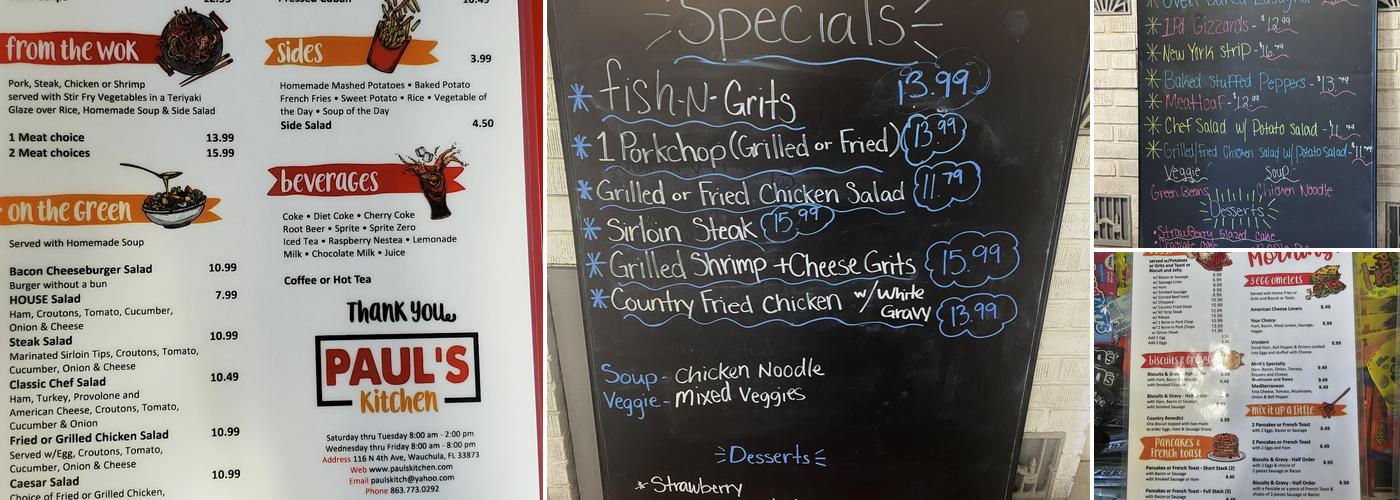 12.99
Pressed Cuban
10.49
from the wok
Pork, Steak, Chicken or Shrimp
served with Stir Fry Vegetables in a Teriyaki
Glaze over Rice, Homemade Soup & Side Salad
1 Meat choice 13.99
2 Meat choices 15.99
on the Green
Served with Homemade Soup
Bacon Cheeseburger Salad 10.99
Burger without a bun
HOUSE Salad 7.99
Ham, Croutons, Tomato, Cucumber,
Onion & Cheese
Steak Salad 10.99
Marinated Sirloin Tips, Croutons, Tomato,
Cucumber, Onion & Cheese
Classic Chef Salad 10.49
Ham, Turkey, Provolone and
American Cheese, Croutons, Tomato,
Cucumber & Onion
Fried or Grilled Chicken Salad 10.99
Served w/Egg, Croutons, Tomato,
Cucumber, Onion & Cheese
Caesar Salad 10.99
Choice of Fried or Grilled Chicken,
sides
3.99
Homemade Mashed Potatoes • Baked Potato
French Fries • Sweet Potato • Rice • Vegetable of
the Day • Soup of the Day
Side Salad 4.50
beverages
Coke • Diet Coke • Cherry Coke
Root Beer • Sprite • Sprite Zero
Iced Tea • Raspberry Nestea • Lemonade
Milk • Chocolate Milk • Juice
Coffee or Hot Tea
Thank you
PAUL'S
Kitchen
Saturday thru Tuesday 8:00 am - 2:00 pm
Wednesday thru Friday 8:00 am - 8:00 pm
Address 116 N 4th Ave, Wauchula, FL 33873
Web www.paulskitchen.com
Email paulskitch@yahoo.com
Phone 863.773.0292
Specials
* fish-N-Grits 13.99
* 1 Porkchop (Grilled or Fried) 13.99
* Grilled or Fried Chicken Salad 11.79
* Sirloin Steak 15.99
* Grilled Shrimp + Cheese Grits 15.99
* Country Fried Chicken w/White Gravy 13.99
Soup - Chicken Noodle
Veggie - Mixed Veggies
Desserts
* Strawberry
Oven Baked Lasagna
* 1Pd Gizzards - $12.99
* New York Strip - $16.79
* Baked Stuffed Peppers - $13.79
* Meatloaf - $12.99
* Chef Salad w/ Potato Salad - $11.79
* Grilled/Fried Chicken Salad w/ Potato Salad - $11.79
Veggie Soup
Green Beans Chicken Noodle
Desserts
* Strawberry Glazed Cake
Morning
3 egg omelets
American Cheese Lovers 8.49
Your Choice 8.99
Western 8.99
Mediterranean 9.49
biscuits & gravy
Country Benedict
Pancakes &
French toast
Pancakes or French Toast - Short Stack (2)
Pancakes or French Toast - Full Stack (3)
mix it up a little
2 Pancakes or French Toast
with 2 Eggs, Bacon or Sausage
2 Pancakes or French Toast
with 2 Eggs and Ham
Biscuits & Gravy - Half Order
with 2 Eggs & choice of
Biscuits & Gravy - Half Order